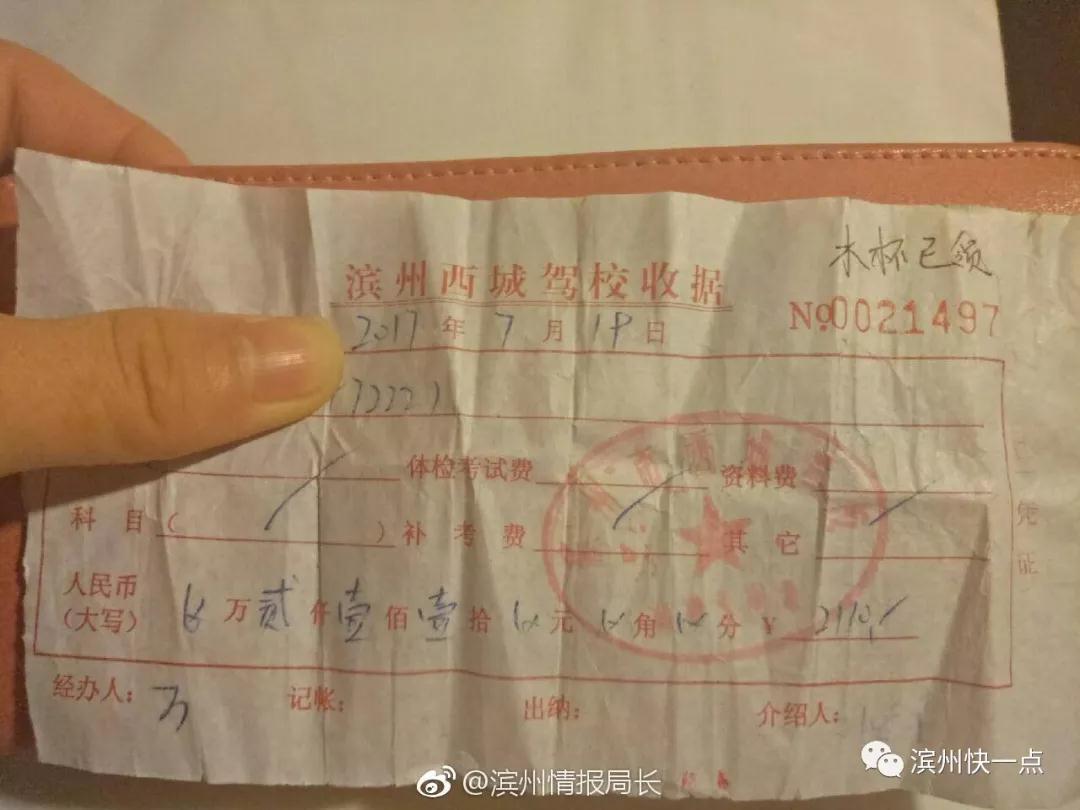 木杯已领
滨州西城驾校收据
No 0021497
2017年7月19日
体检考试费 资料费
科目( ) 补考费 其它
人民币
(大写) 万贰仟壹佰壹拾 元 角 分 ¥ 2110
经办人: 记帐: 出纳: 介绍人:
凭证
@滨州情报局长
滨州快一点